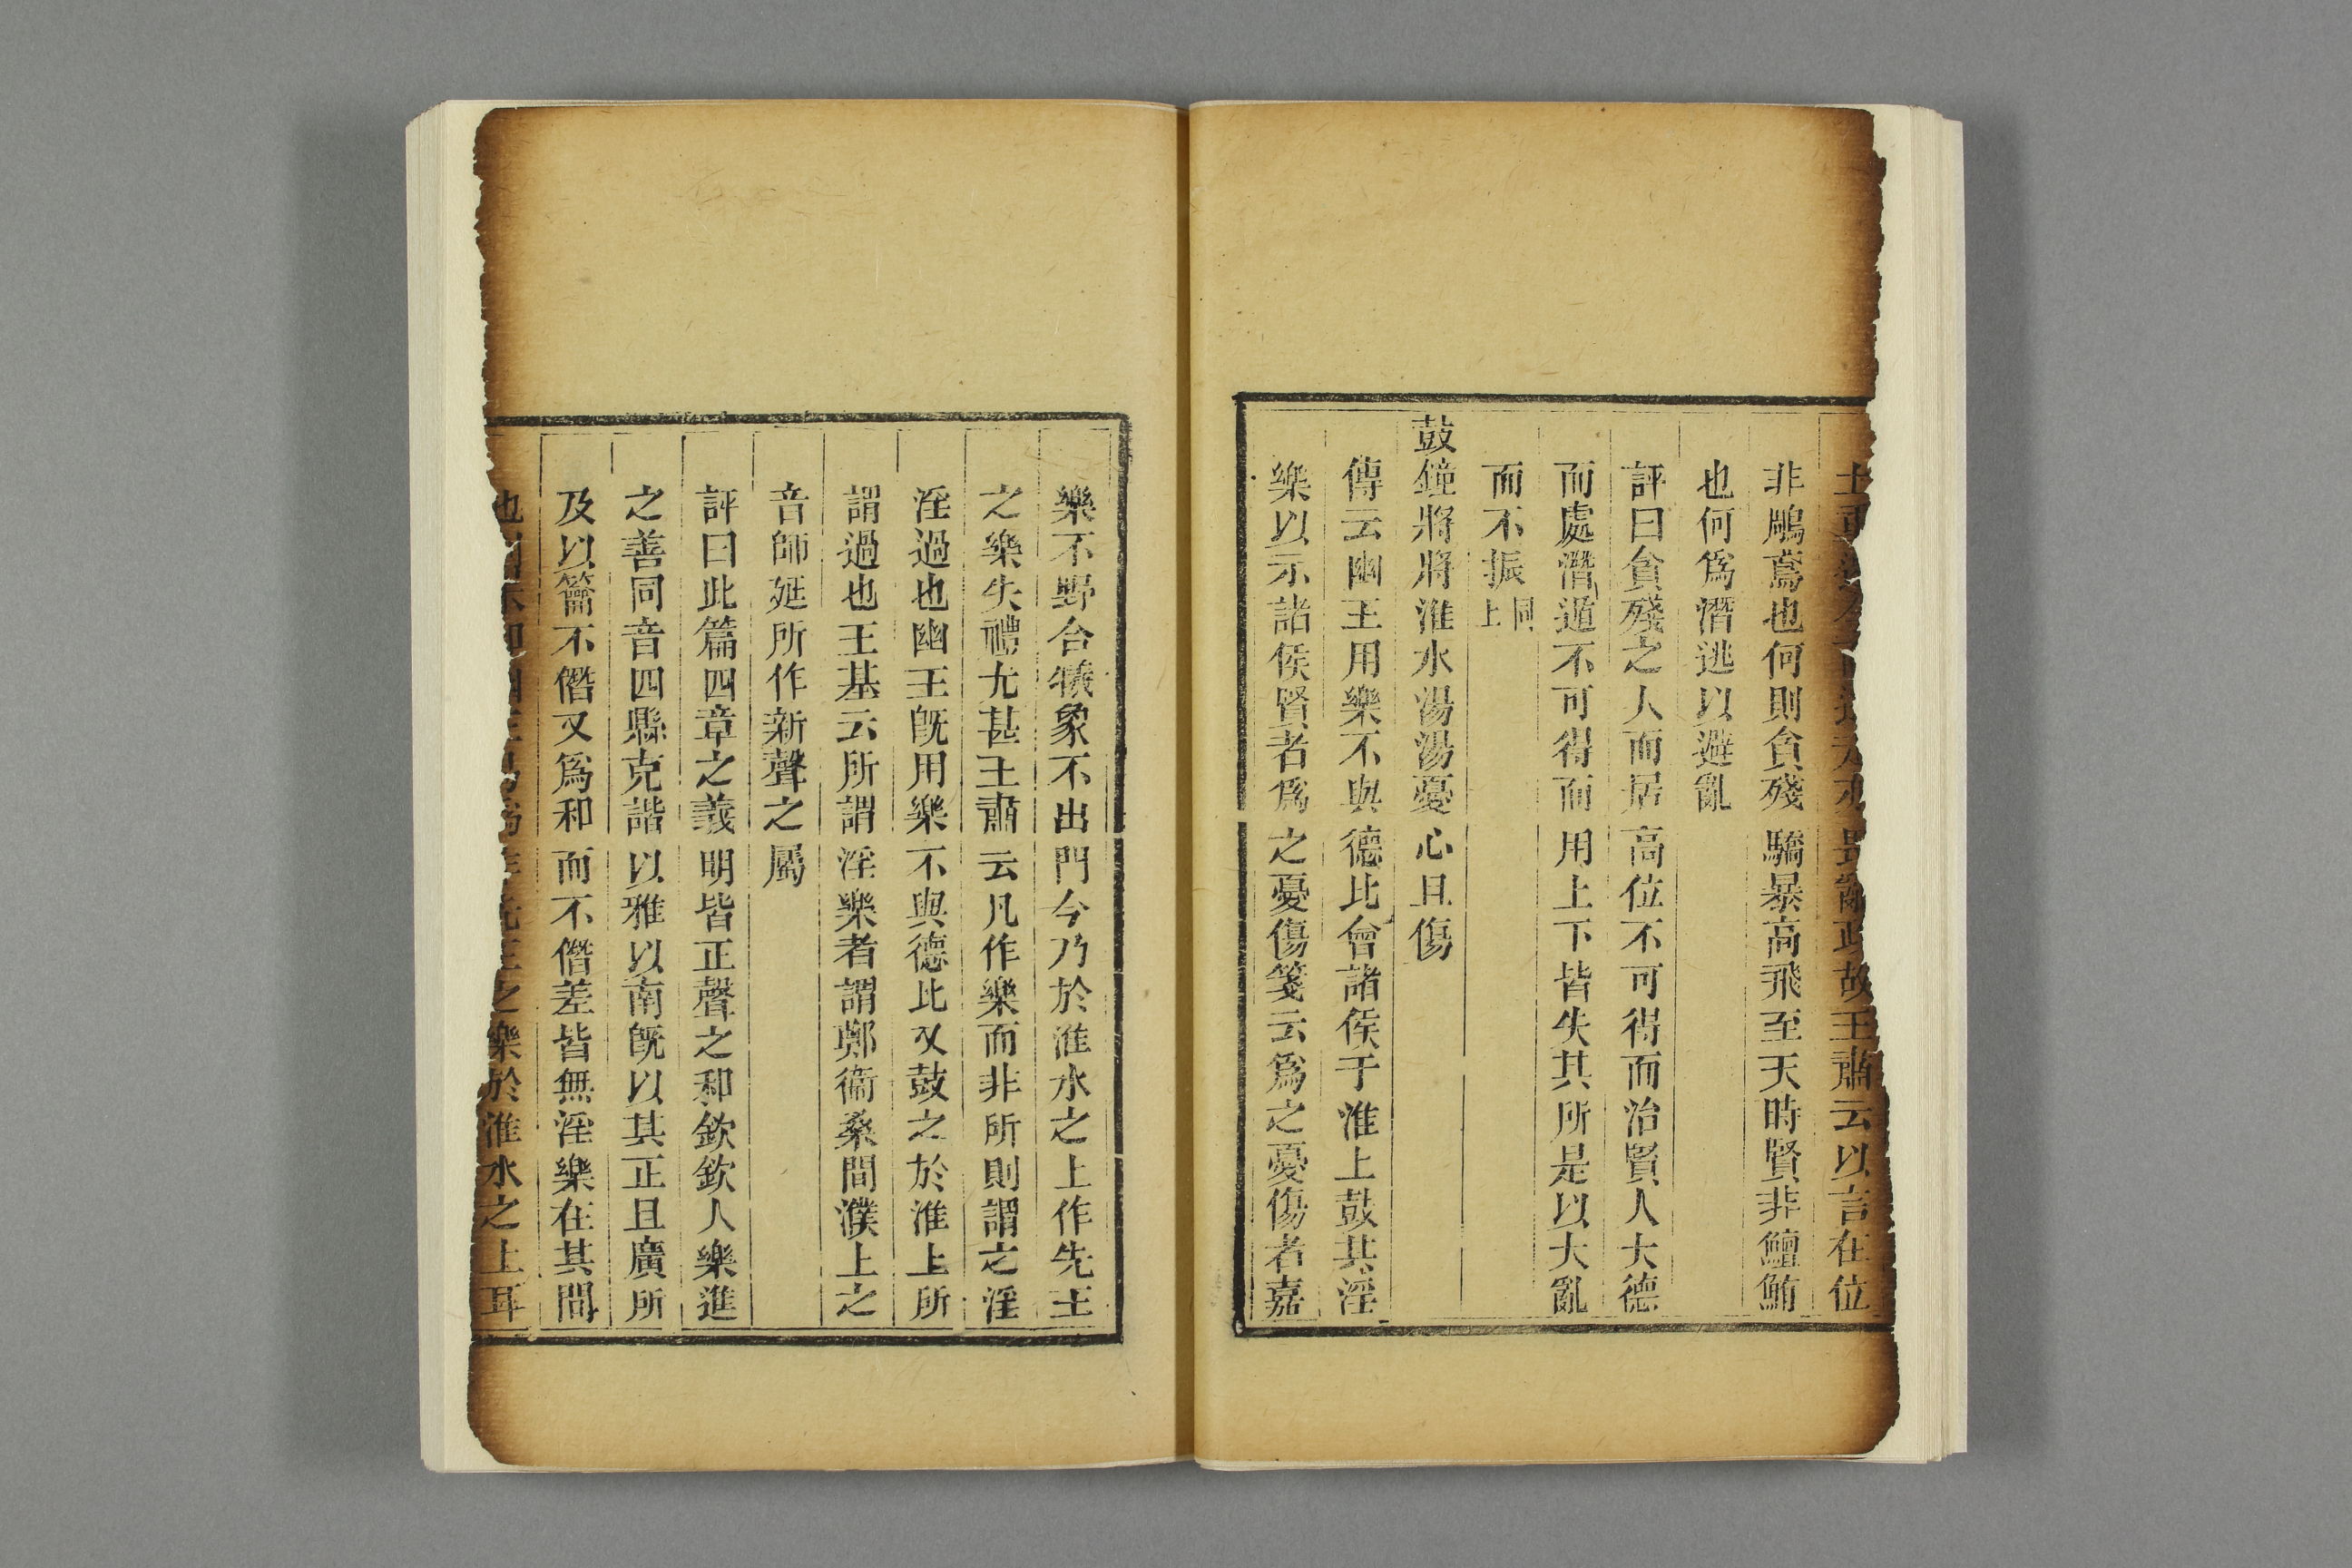 亂政故王肅云以言在位
非鵰鳶也何則貪殘驕暴高飛至天時賢非鱣鮪
也何爲潛逃以避亂
評曰貪殘之人而居高位不可得而治賢人大德
而處潛遁不可得而用上下皆失其所是以大亂
而不振同上
鼓鐘將將淮水湯湯憂心且傷
傳云幽王用樂不與德比會諸侯于淮上鼓其淫
樂以示諸侯賢者爲之憂傷箋云爲之憂傷者嘉
樂不野合犧象不出門今乃於淮水之上作先王
之樂失禮尤甚王肅云凡作樂而非所則謂之淫
淫過也幽王旣用樂不與德比又鼓之於淮上所
謂過也王基云所謂淫樂者謂鄭衞桑間濮上之
音師延所作新聲之屬
評曰此篇四章之義明皆正聲之和欽欽人樂進
之善同音四縣克諧以雅以南旣以其正且廣所
及以籥不僭又爲和而不僭差皆無淫樂在其間
也王之樂於淮水之上耳